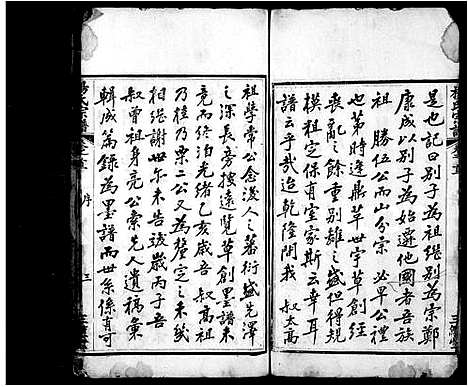 是也記曰别子為祖继别為宗鄭
康成以别子為始遷他國者吾族
祖 勝伍公而山分宗 必畢公禮
也第時逄鼎革世宇草創經
喪亂之餘重别離之感但得規
模粗定保有室家斯云幸耳
譜云乎哉迨乾隆間我 叔太高
祖學常公念後人之蕃衍感先澤
之深長旁搜遠覽草創墨譜未
竟而终洎光绪乙亥歲吾 叔高祖
乃桂乃栗二公又為釐定之未幾
相继謝世午未告竣歲丙子吾
叔曾祖身亮公索先人遺稿彙
輯成篇錄為墨譜而世系係有可
楊氏宗譜
序
三